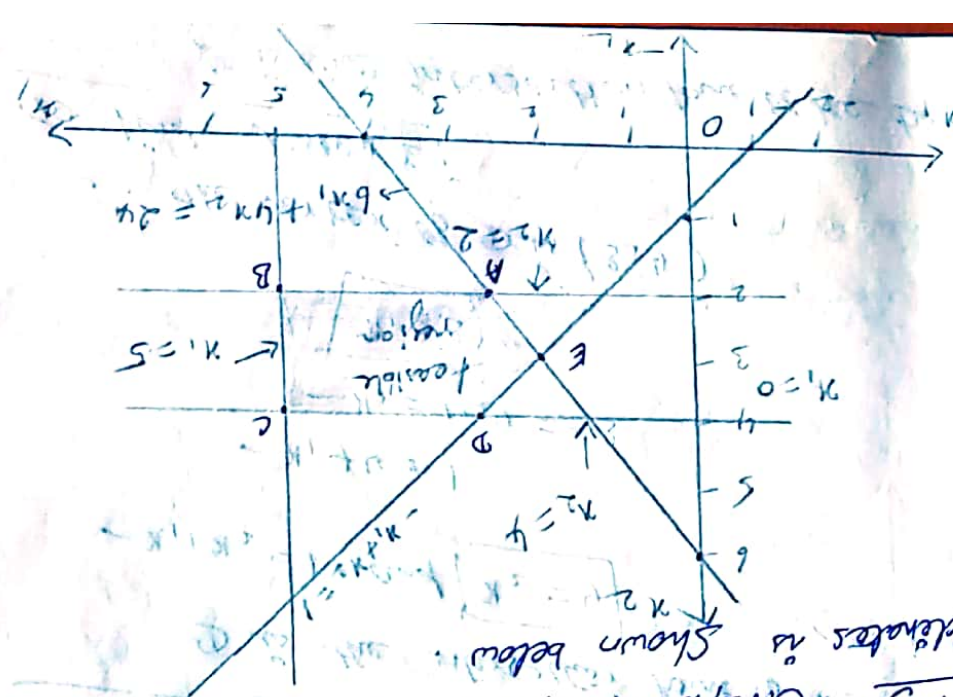 dinates is shown below.
x2
6
5
4
3
2
1
O
1
2
3
4
5
x1
-x2
x2 = 4
-x1 + x2 = 1
x1 = 0
D
C
E
feasible
region
x1 = 5
A
B
x2 = 2
6x1 + 4x2 = 24